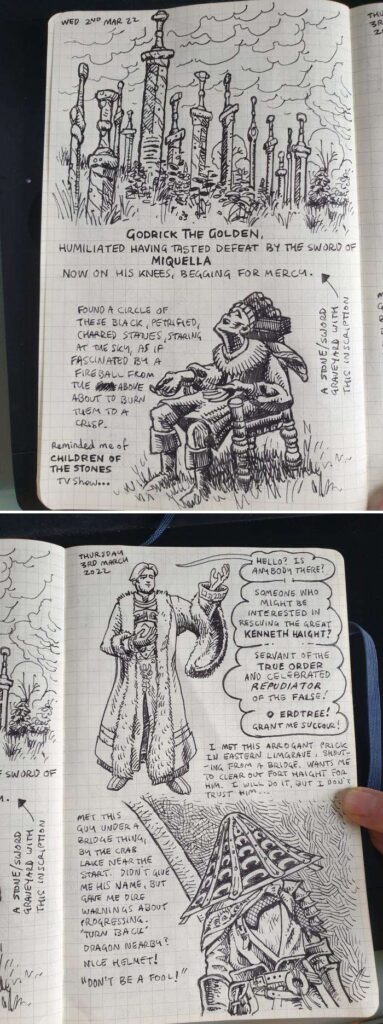 WED 2ND MAR 22
GODRICK THE GOLDEN,
HUMILIATED HAVING TASTED DEFEAT BY THE SWORD OF
MIQUELLA
NOW ON HIS KNEES, BEGGING FOR MERCY.
A STONE/SWORD
GRAVEYARD WITH
THIS INSCRIPTION
FOUND A CIRCLE OF
THESE BLACK, PETRIFIED,
CHARRED STATUES, STARING
AT THE SKY, AS IF
FASCINATED BY A
FIREBALL FROM
THE ABOVE
ABOUT TO BURN
THEM TO A
CRISP.
Reminded me of
CHILDREN OF
THE STONES
TV SHOW...
THURSDAY
3RD MARCH
2022
HELLO? IS
ANYBODY THERE?
SOMEONE WHO
MIGHT BE
INTERESTED IN
RESCUING THE GREAT
KENNETH HAIGHT?
SERVANT OF THE
TRUE ORDER
AND CELEBRATED
REPUDIATOR
OF THE FALSE!
O ERDTREE!
GRANT ME SUCCOUR!
I MET THIS ARROGANT PRICK
IN EASTERN LIMGRAVE, SHOUT-
ING FROM A BRIDGE. WANTS ME
TO CLEAR OUT FORT HAIGHT FOR
HIM. I WILL DO IT, BUT I DON'T
TRUST HIM...
SWORD OF
A STONE/SWORD
GRAVEYARD WITH
THIS INSCRIPTION
MET THIS
GUY UNDER A
BRIDGE THING,
BY THE CRAB
LAKE NEAR THE
START. DIDN'T GIVE
ME HIS NAME, BUT
GAVE ME DIRE
WARNINGS ABOUT
PROGRESSING.
'TURN BACK'
DRAGON NEARBY?
NICE HELMET!
"DON'T BE A FOOL!"